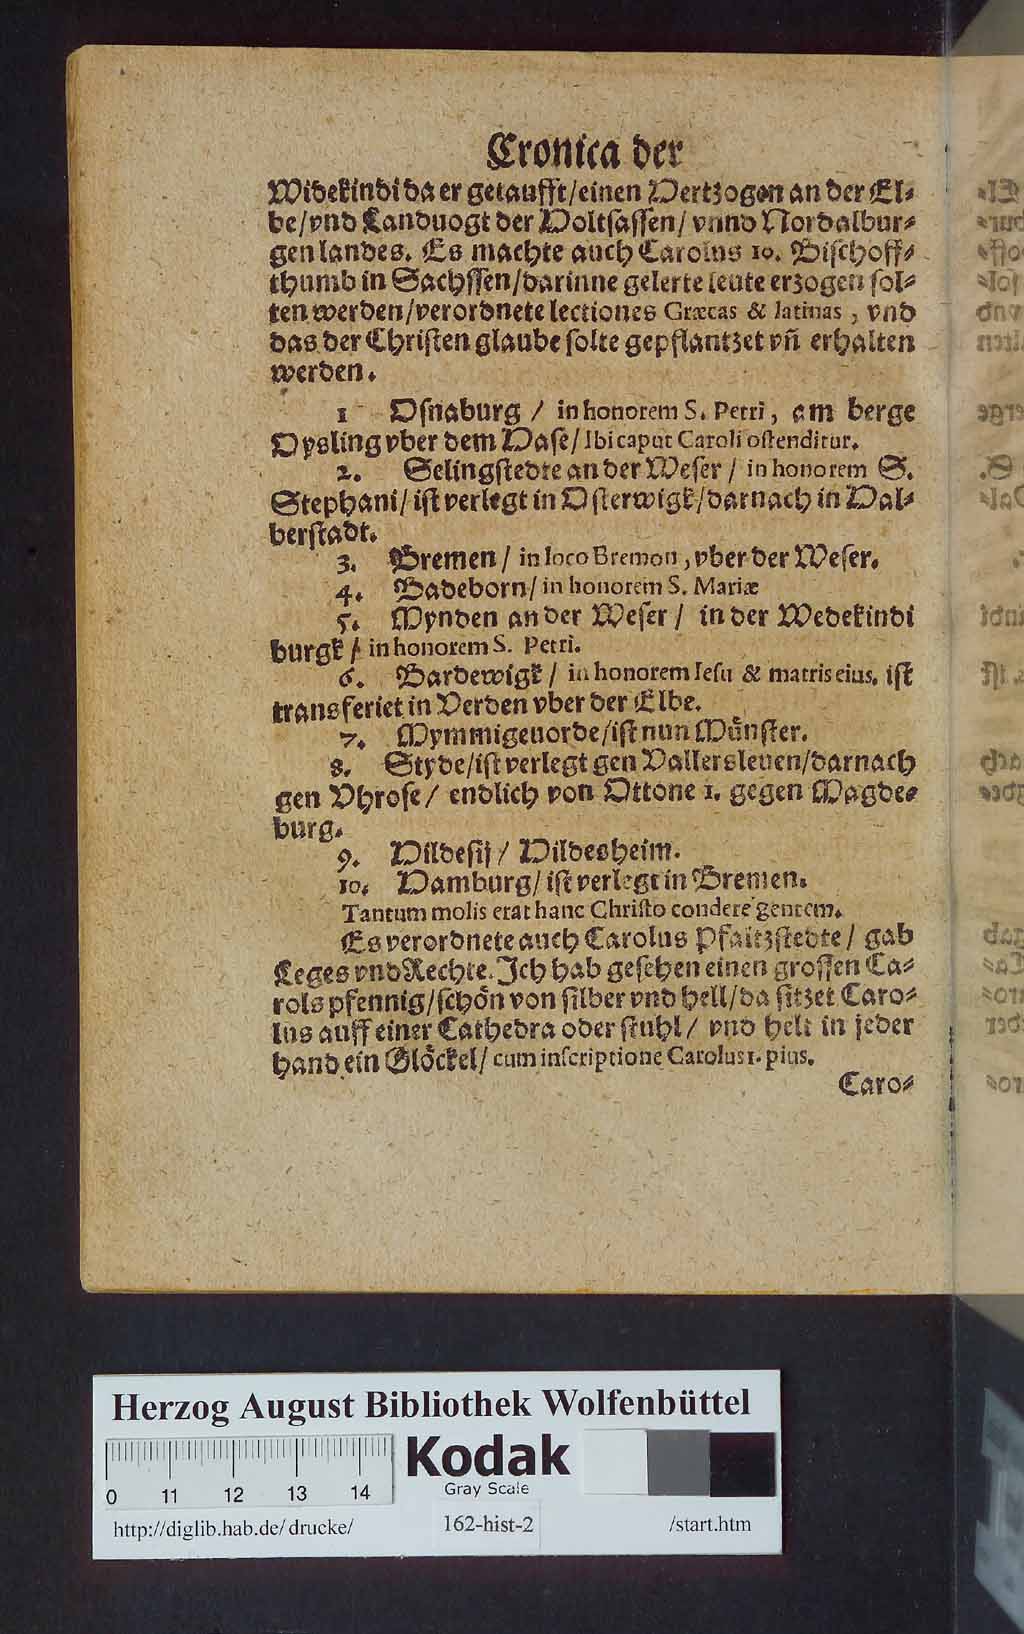 Cronica der
Widekindi da er getaufft/einen Hertzogen an der El⸗
be/vnd Landuogt der Holtsassen/ vnnd Nordalbur⸗
gen landes. Es machte auch Carolus 10. Bischoff⸗
thumb in Sachssen/darinne gelerte leute erzogen sol⸗
ten werden/verordnete lectiones Græcas & latinas, vnd
das der Christen glaube solte gepflantzet vñ erhalten
werden.
1 Osnaburg / in honorem S. Petri, am berge
Hysling vber dem Hase/ Ibi caput Caroli ostenditur.
2. Selingstedte an der Weser / in honorem S.
Stephani/ ist verlegt in Osterwigk/darnach in Hal⸗
berstadt.
3. Bremen / in loco Bremon, vber der Weser.
4. Badeborn/ in honorem S. Mariæ
5. Mynden an der Weser / in der Wedekindi
burgk / in honorem S. Petri.
6. Bardewigk / in honorem Iesu & matris eius. ist
transferiet in Verden vber der Elbe.
7. Mymmigeuorde/ist nun Münster.
8. Styde/ist verlegt gen Vallersleuen/darnach
gen Vhrose/ endlich von Ottone 1. gegen Magde⸗
burg.
9. Hildesij / Hildesheim.
10. Hamburg/ ist verlegt in Bremen.
Tantum molis erat hanc Christo condere gentem.
Es verordnete auch Carolus Pfaltzstedte / gab
Leges vnd Rechte. Ich hab gesehen einen grossen Ca⸗
rols pfennig/schön von silber vnd hell/da sitzet Caro⸗
lus auff einer Cathedra oder stuhl/ vnd helt in jeder
hand ein Glöckel/ cum inscriptione Carolus 1. pius.
Caro⸗
Herzog August Bibliothek Wolfenbüttel
Kodak
Gray Scale
0 11 12 13 14
http://diglib.hab.de/drucke/ 162-hist-2 /start.htm